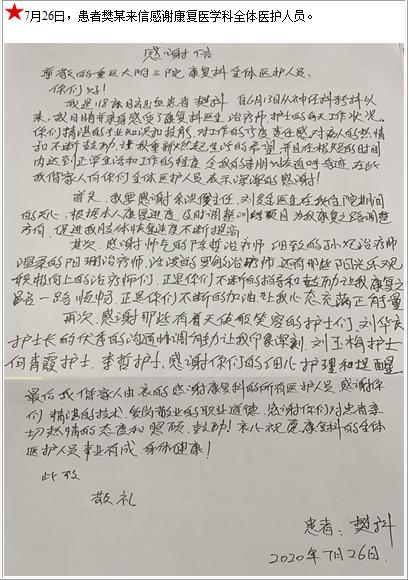 7月26日，患者樊某来信感谢康复医学科全体医护人员。
感谢信
尊敬的重医大附三院康复科全体医护人员：
你们好！
我是18床脑出血患者樊科 自6月13日从神经科转科以
来，我目睹并亲自感受了康复科医生 治疗师，护士的每天工作状况。
你们精湛的专业知识和技能，对工作的高度责任感，对病人的热情
和不断鼓励，让我重新燃起生活的希望，并且在极短的时间
内达到正常生活和工作的程度 令我的亲朋好友连呼奇迹，在此
我偕家人向你们全体医护人员表示深深的感谢！
首先，我要感谢 主任，刘 医生在我住院期间
的关心，根据本人康复进度，及时调整训练项目，为我康复之路调整
方向，促进我肢体快速度不断提高
其次，感谢帅气的陈哲治疗师，细致的孙 治疗师
温柔的阳珊治疗师，活泼的罗敏治疗师，还有那些阳光乐观
积极向上的治疗师们，正是你们不断的指导和鼓励让我康复之
路一路顺畅，正是你们不断的加油让我心态充满正能量
再次，感谢那些有着天使般笑容的护士们 刘华 
护士长的优秀的沟通协调能力让我印象深刻 刘玉梅护士
何青霞护士，李哲护士，感谢你们的细心护理和提醒
最后我偕家人由衷的感谢康复科的所有医护人员，感谢你
们精湛的技术，爱岗敬业的职业道德，感谢你们对患者亲
切热情的态度和照顾，鼓励！衷心祝愿康复科的全体
医护人员事业有成，身体健康！
此致
敬礼
患者：樊科
2020年7月26日.